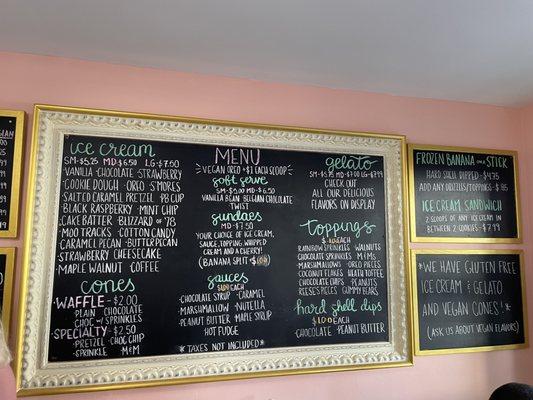 ice cream
SM-$5.25 MD-$6.50 LG-$7.50
VANILLA · CHOCOLATE · STRAWBERRY
COOKIE DOUGH · OREO · S'MORES
SALTED CARAMEL PRETZEL · PB CUP
BLACK RASPBERRY · MINT CHIP
CAKE BATTER · BLIZZARD OF '78
MOO TRACKS · COTTON CANDY
CARAMEL PECAN · BUTTER PECAN
STRAWBERRY CHEESECAKE
MAPLE WALNUT · COFFEE
cones
WAFFLE - $2.00
PLAIN CHOCOLATE
CHOC W/ SPRINKLES
SPECIALTY - $2.50
PRETZEL · CHOC CHIP
SPRINKLE · M&M
MENU
VEGAN OREO +$1 EACH SCOOP
soft serve
SM-$5.00 MD-$6.50
VANILLA BEAN · BELGIAN CHOCOLATE
TWIST
sundaes
MD - $7.50
YOUR CHOICE OF ICE CREAM,
SAUCE, TOPPING, WHIPPED
CREAM AND A CHERRY!
(BANANA SPLIT - $1.00)
sauces
$1.00 EACH
CHOCOLATE SYRUP · CARAMEL
MARSHMALLOW · NUTELLA
PEANUT BUTTER · MAPLE SYRUP
HOT FUDGE
* TAXES NOT INCLUDED *
gelato
SM-$5.75 MD-$6.75 LG-$7.75
CHECK OUT
ALL OUR DELICIOUS
FLAVORS ON DISPLAY
toppings
$1.00 EACH
RAINBOW SPRINKLES · WALNUTS
CHOCOLATE SPRINKLES · M&M'S
MARSHMALLOWS · OREO PIECES
COCONUT FLAKES · HEATH TOFFEE
CHOCOLATE CHIPS · PEANUTS
REESE'S PIECES · GUMMY BEARS
hard shell dips
$1.00 EACH
CHOCOLATE · PEANUT BUTTER
FROZEN BANANA ON A STICK
HARD SHELL DIPPED - $4.75
ADD ANY DRIZZLES/TOPPINGS - $.85
ICE CREAM SANDWICH
2 SCOOPS OF ANY ICE CREAM
IN BETWEEN 2 COOKIES - $7.99
* WE HAVE GLUTEN FREE
ICE CREAM & GELATO
AND VEGAN CONES! *
(ASK US ABOUT VEGAN FLAVORS)